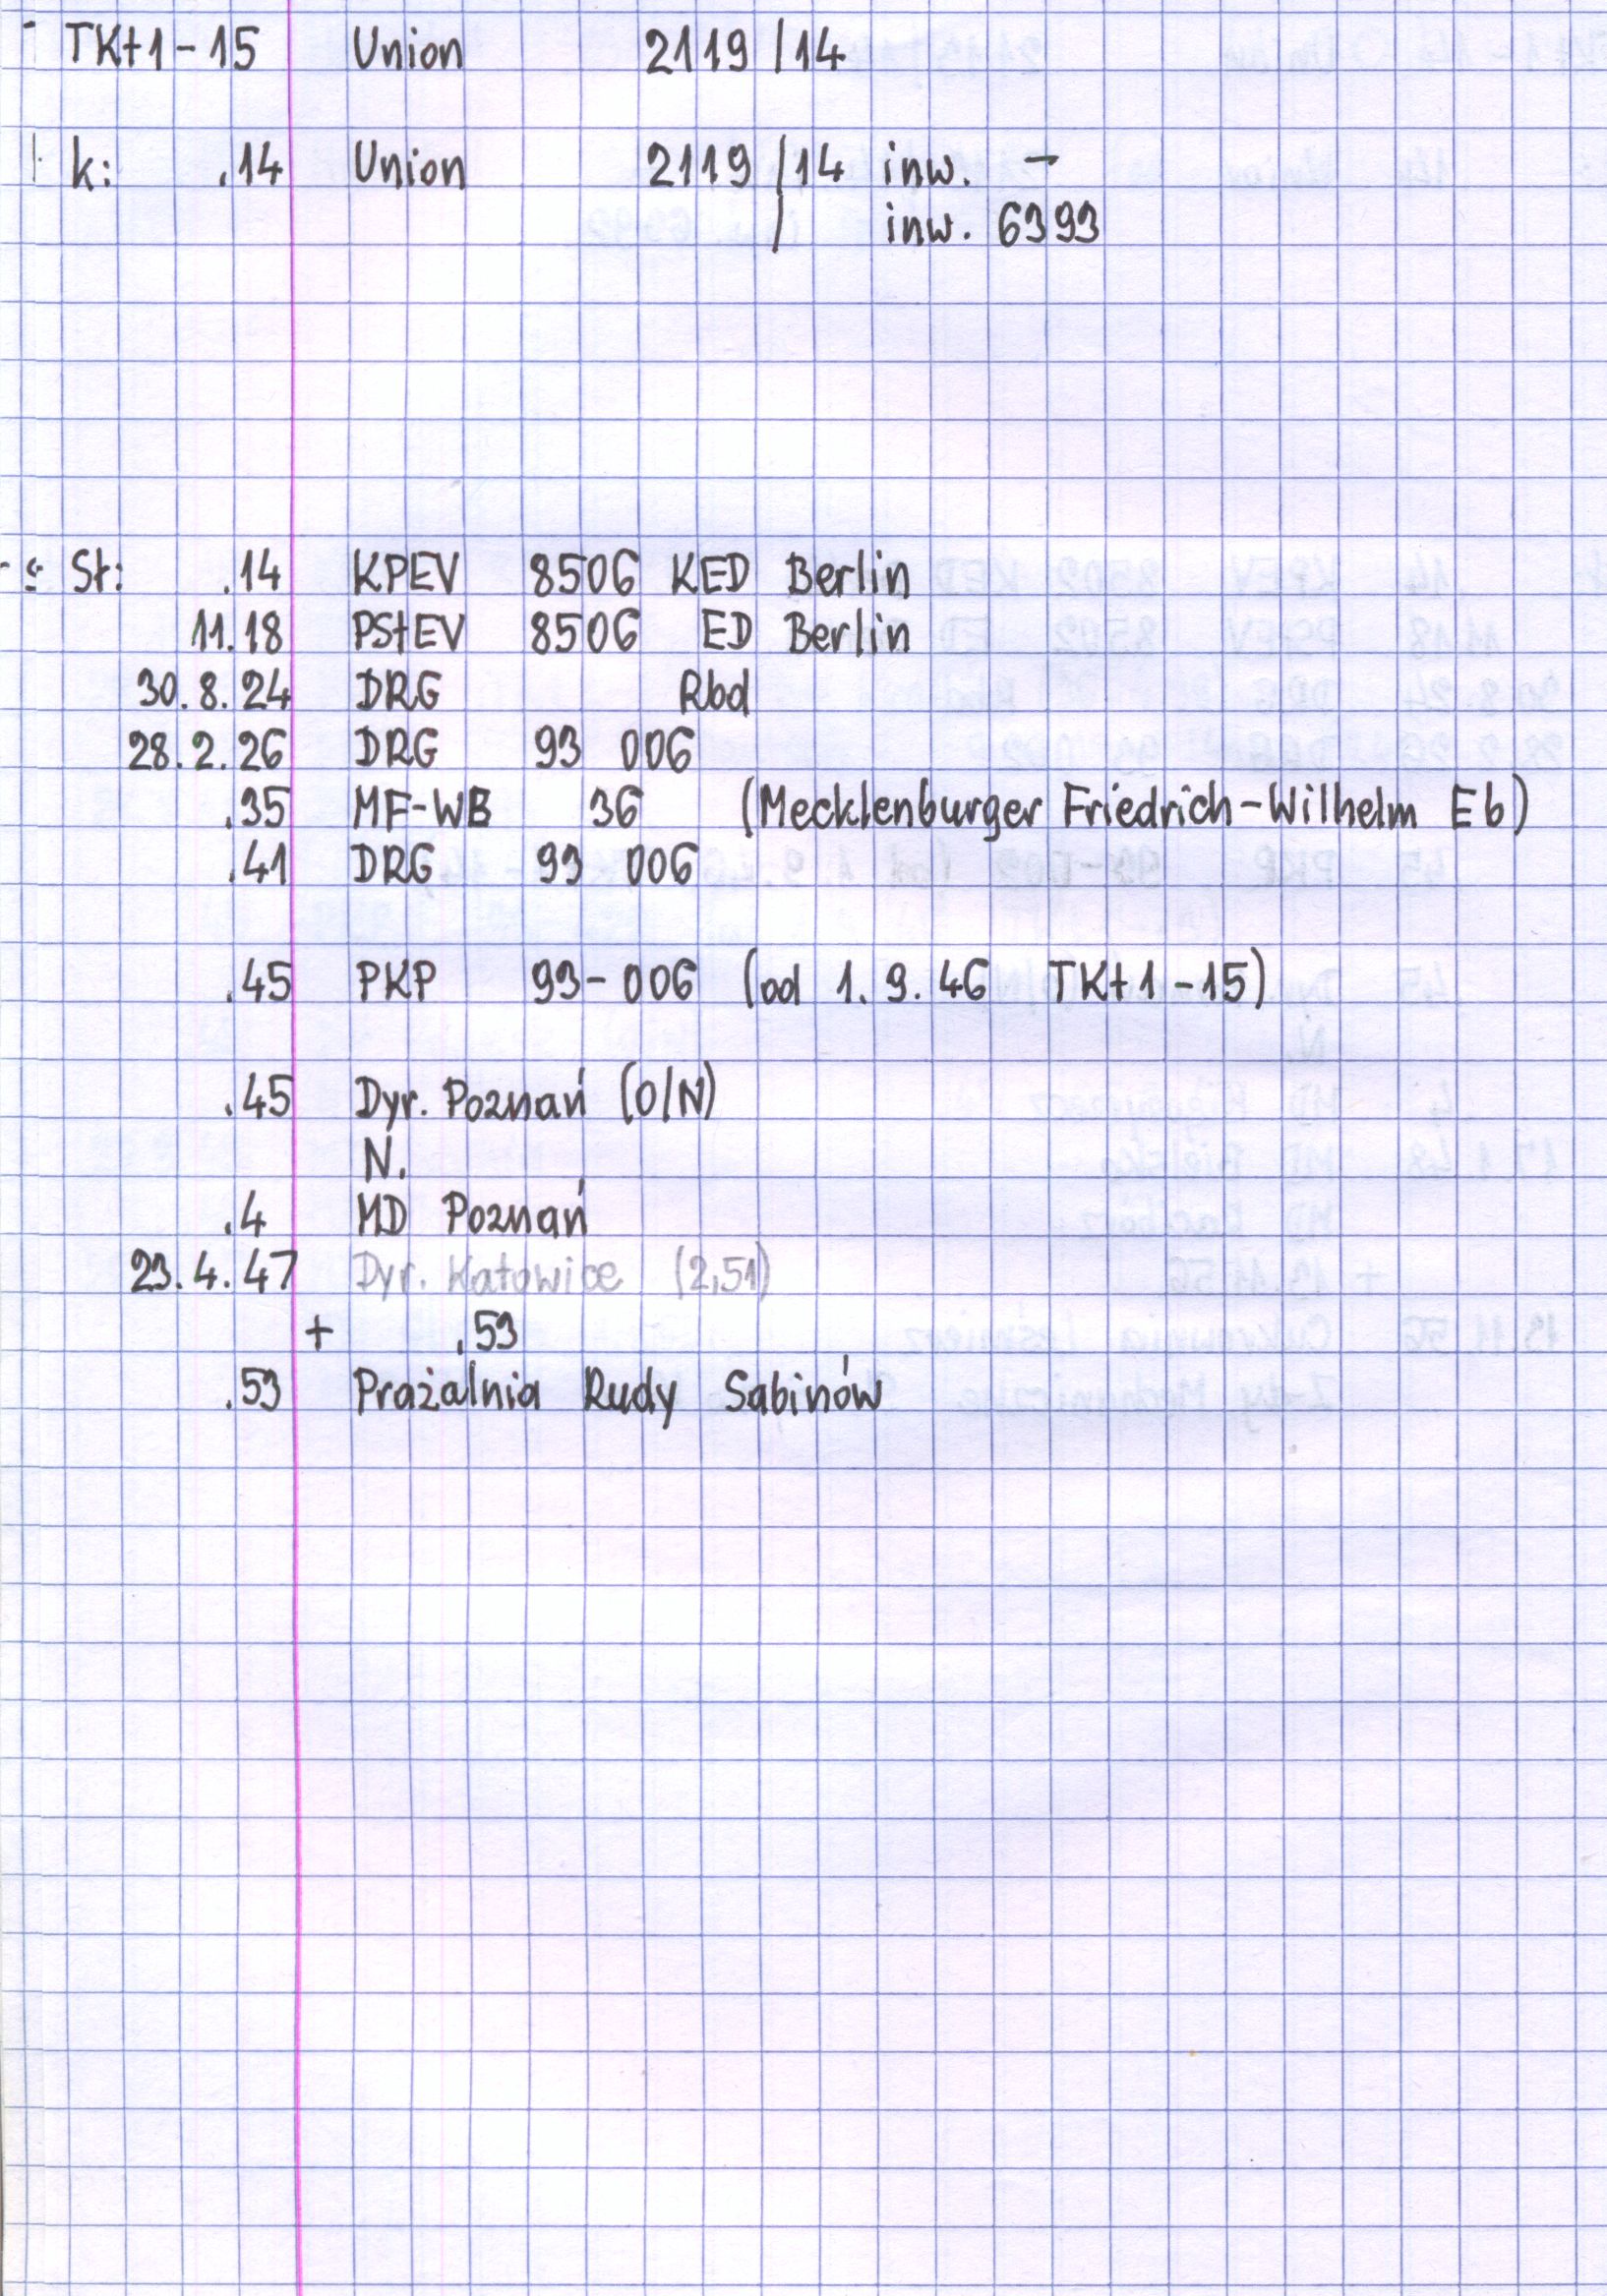 TKt1-15 Union 2119/14
k: .14 Union 2119/14 inw. -
inw. 6393
St: .14 KPEV 8506 KED Berlin
11.18 PStEV 8506 ED Berlin
30.8.24 DRG Rbd
28.2.26 DRG 93 006
.35 MF-WB 36 (Mecklenburger Friedrich-Wilhelm Eb)
.41 DRG 93 006
.45 PKP 93-006 (od 1.9.46 TKt1-15)
.45 Dyr. Poznań (O/N)
N.
.4 MD Poznań
23.4.47 Dyr. Katowice (2,51)
+ .53
.53 Prażalnia Rudy Sabinów